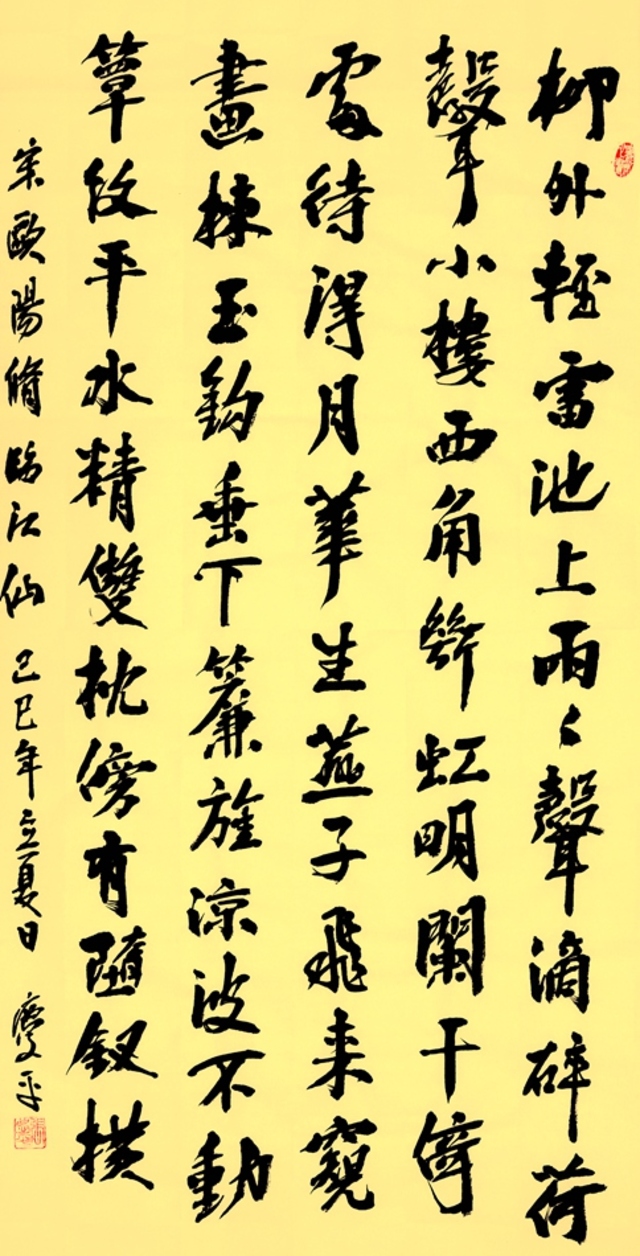 柳外輕雷池上雨〻聲滴碎荷
聲小樓西角斷虹明闌干倚
處待得月華生燕子飛来窺
畫棟玉鈎垂下簾旌涼波不動
簟紋平水精雙枕傍有墮釵横
宋歐陽脩臨江仙 己巳年立夏日 平